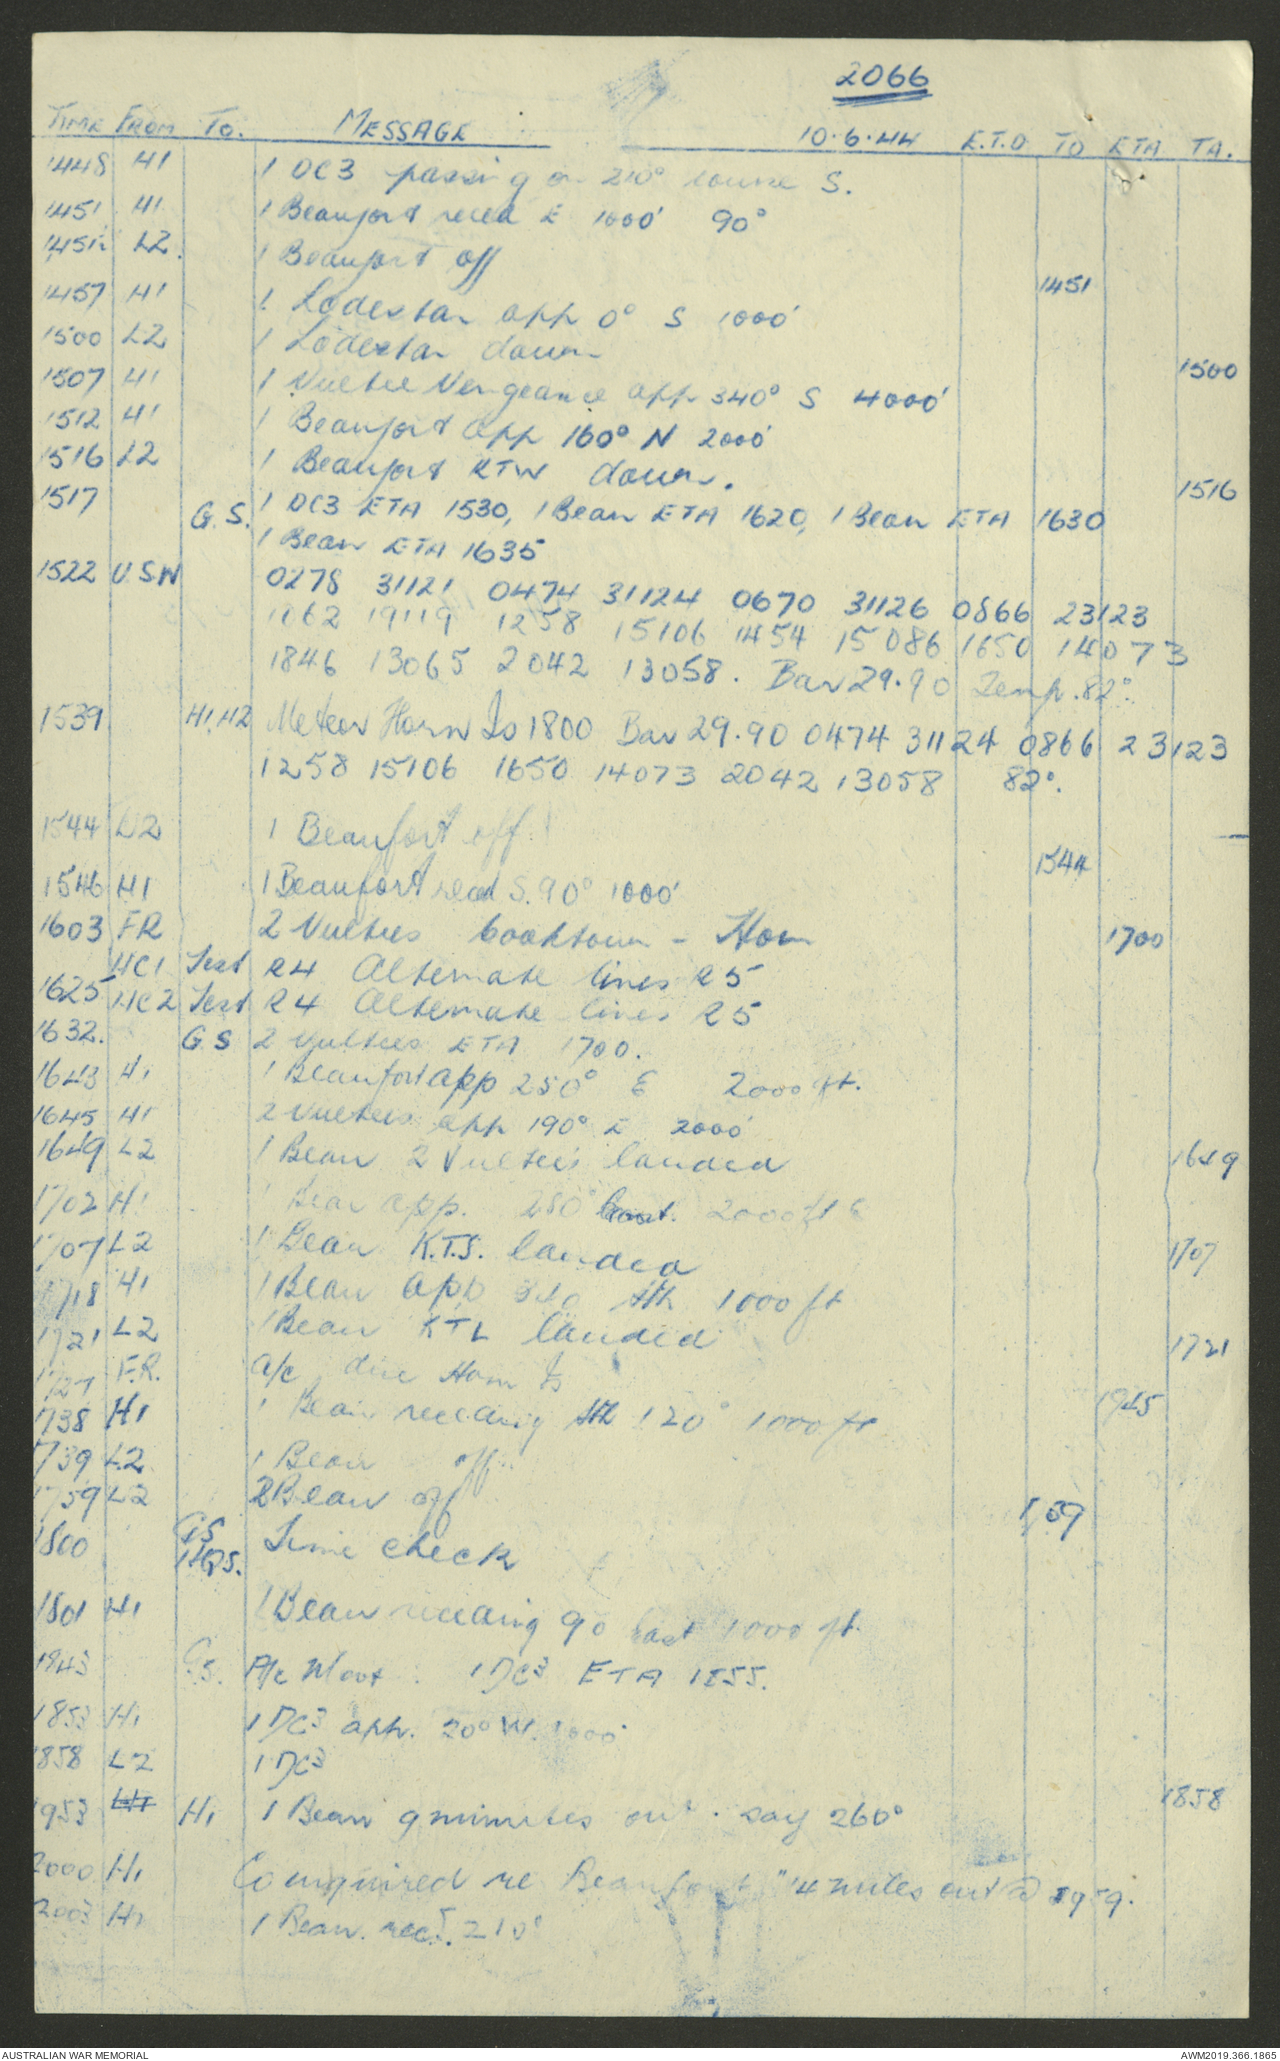 2066
TIME FROM TO. MESSAGE 10.6.44 E.T.D TD ETA TA.
1448 H1 1 DC3 passing on 210° course S.
1451 H1 1 Beaufort reced E 1000' 90°
L2. 1 Beaufort off 1451
1457 H1 1 Lodestar app 0° S 1000'
1500 L2 1 Lodestar down 1500
1507 H1 1 Vultee Vengeance app 340° S 4000'
1512 H1 1 Beaufort app 160° N 2000'
1516 L2 1 Beaufort KTW down. 1516
1517 G.S. 1 DC3 ETA 1530, 1 Beau ETA 1620, 1 Beau ETA 1630
1 Beau ETA 1635
1522 U.SW 0278 31121 0474 31124 0670 31126 0866 23123
1062 19119 1258 15106 1454 15086 1650 14073
1846 13065 2042 13058. Bar 29.90 Temp. 82°.
1539 H1,H2 Meteor Horn Is 1800 Bar 29.90 0474 31124 0866 23123
1258 15106 1650 14073 2042 13058 82°.
1544 L2 1 Beaufort off 1544
1546 H1 1 Beaufort reced S. 90° 1000'
1603 FR 2 Vultees Cooktown - Horn 1700
HC1 Test R4 Alternate lines R5
1625 HC2 Test R4 Alternate lines R5
1632. G S 2 Vultees ETA 1700.
1643 H1 1 Beaufort app 250° E 2000 ft.
1645 H1 2 Vultees app 190° E 2000'
1649 L2 1 Beau 2 Vultees landed 1649
1702 H1 1 Beau app. 280° 2000 ft E
1707 L2 1 Beau K.T.S. landed 1707
1718 H1 1 Beau app Sth 1000 ft
1721 L2 1 Beau KTL landed 1721
F.R. A/c due Horn Is 1945
1738 H1 1 Beau receding Sth 120° 1000 ft
1739 L2 1 Beau off
1759 L2 2 Beau off 1759
1800 GS Time check
1801 H1 1 Beau receding 90 East 1000 ft.
1843 G.S. A/c Movt. 1 DC3 ETA 1855.
1853 H1 1 DC3 app. 20° W. 1000'
1858 L2 1 DC3 1858
1953 H1 H1 1 Beau 9 minutes out. say 260°
2000 H1 Co inquired re Beaufort "14 miles out @ 1959.
2003 H1 1 Beau. rec. 210°
AUSTRALIAN WAR MEMORIAL AWM2019.366.1865